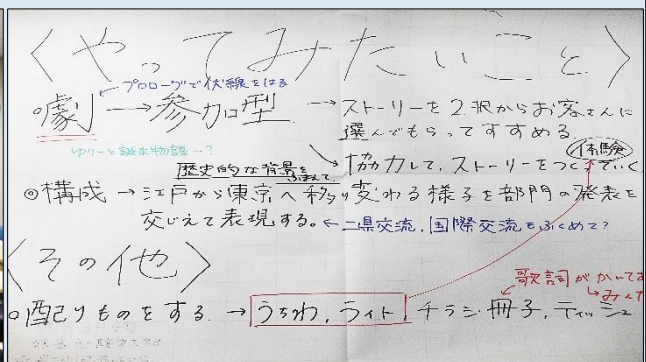 〈やってみたいこと〉
プロローグで伏線をはる
◦劇→参加型→ストーリーを2択からお客さんに
選んでもらってすすめる。
ゆりーと誕生物語…?
協力して、ストーリーをつくっていく
体験
歴史的な背景を踏まえて
◎構成→江戸から東京へ移り変わる様子を部門の発表を
交じえて表現する。←二県交流、国際交流もふくめて?
〈その他〉
歌詞がかいてあ
→みんて
◦配りものをする→うちわ, ライト, チラシ, 冊子, ティッシュ